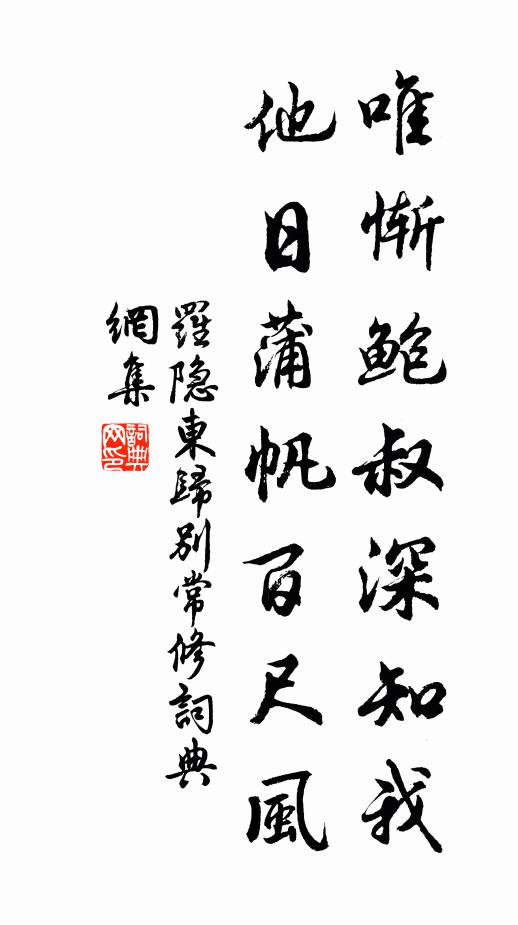 唯慚鮑叔深知我
他日蒲帆百尺風
羅隐東歸别常修詞典
網集
詞典網印